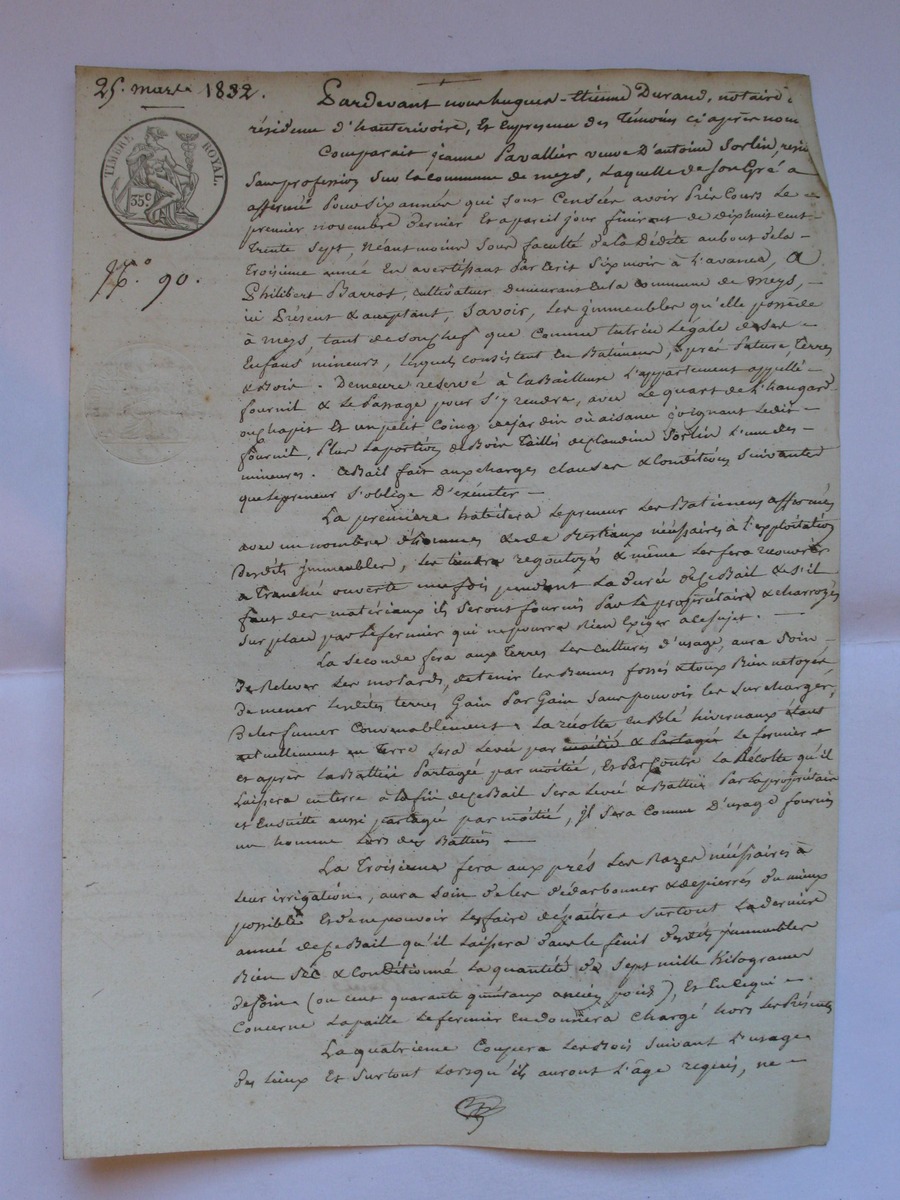 25. mars 1832.
Pardevant nous hugues-Etienne Durand, notaire à
résidence d'hauterivoire, Et Enpresence des Témoins ci après nom
Comparait jeanne Pavallier veuve D'antoine Sorlin, resid
Sans profession Sur la commune de meys, Laquelle de Son Gré a
affermé Pour Six année qui Sont Censées avoir Pris Cours Le
premier novembre dernier Et apareil jour finiront de dixhuit cent
Trente Sept, Néant moins Sous faculté de la Dédite aubout dela
Troisieme année En avertissant Par Ecrit Six moir à L'avance, A
Philibert Barrot, cultivateur demeurant En la commune de Meys,
ici Présent & acceptant, Savoir, Les jmmeubles qu'elle possède
à meys, tant de Son Chef que Comme tutrice Légale de Ses
Enfans mineurs, Lesquels consistent En Batimens, prés Pature, Terres
& Bois. Demeure reservé à La Bailleuse L'appartement appellé
fournil & Le Passage pour S'y rendre, avec Le quart de L'hangard
ou chapit Et un petit Coing de jardin ou aisance joignant Ledit
fournil, Plus La portion de Bois Taillis de Claudine Sorlin L'une des
mineures. Ce Bail fait aux charges clauses & Conditions Suivantes
que Le preneur S'oblige D'exécuter
La premiere habitera Le preneur Les Batimens affermés
avec un nombre d'hommes & de Bestiaux nécéssaires à l'exploitation
Desdits jmmeubles, Les tiendra regoutoyés & même Les fera recouvrir
a Tranchée ouverte une fois pendant La durée de Ce Bail & S'il
faut des materiaux ils Seront fournis Par Le propriétaire & charroyés
Sur place par Le fermier qui ne pourra Rien Exiger à Ce Sujet.
La Seconde fera aux Terres Les Cultures d'usage, aura Soin
De Relever Les molards, de tenir Les Bennes fossés & toux Bien netoyés,
De mener Lesdites terres Gain Par Gain Sans pouvoir les Surcharger,
De Les fumer Convenablement. La récolte en Blé hivernaux étant
actuellement en Terre Sera Levée par moitié & Partagée Le fermier
et après La Battue Partagée par moitié, Et Par Contre La Récolte qu'il
Laissera en terre à La fin de Ce Bail Sera Levée & Battue Par La propriétaire
et Ensuitte aussi partagée par moitié, Il Sera Comme D'usage fournir
un homme Lors des Battues
La Troisieme fera aux prés Les Razes nécéssaires à
Leur irrigation, aura Soin de les dédarbonner & depierrés du mieux
possible Et de ne pouvoir Les faire dépaitres Surtout La derniere
année de Ce Bail qu'il Laissera dans le fenil desdits jmmeubles
Bien Sec & Conditionné La quantité de Sept mille Kilogrames
de foin (ou cent quarante quintaux ancien poids), Et En Ce qui
Concerne La paille Le fermier En donnera chargé hors Les Présentes
La quatrieme Coupera Les Bois Suivant L'usage
des Lieux Et Surtout Lorsqu'ils auront L'âge requis, ne
TIMBRE ROYAL.
35c
No. 90.